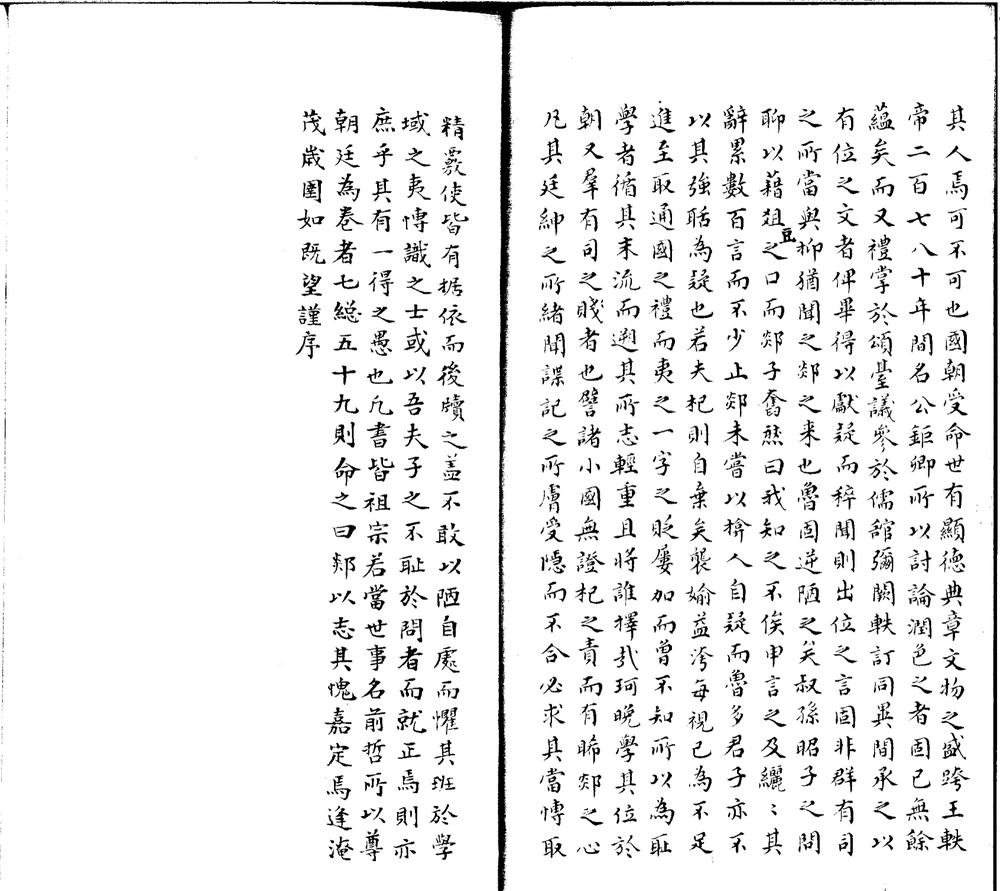 其人焉可不可也國朝受命世有顯德典章文物之盛跨王軼
帝二百七八十年間名公鉅卿所以討論潤色之者固已無餘
蘊矣而又禮掌於頌臺議參於儒舘彌闕軼訂同異間承之以
有位之文者俾畢得以獻疑而稡聞則出位之言固非群有司
之所當與抑猶聞之郯之来也魯固逆陋之矣叔孫昭子之問
聊以藉俎豆之口而郯子奮然曰我知之不俟申言之及纚〻其
辭累數百言而不少止郯未嘗以揜人自疑而魯多君子亦不
以其強聒為疑也若夫杞則自棄矣襲媮益洿每視已為不足
進至取通國之禮而夷之一字之貶屢加而曾不知所以為耻
學者循其末流而遡其所志輕重且將誰擇哉珂晚學其位於
朝又羣有司之賤者也譬諸小國無證杞之責而有晞郯之心
凡其廷紳之所緒聞諜記之所膚受隱而不合必求其當慱取
精覈使皆有据依而後牘之盖不敢以陋自處而懼其班於學
域之夷慱識之士或以吾夫子之不耻於問者而就正焉則亦
庶乎其有一得之愚也凢書皆祖宗若當世事名前哲所以尊
朝廷為巻者七緫五十九則命之曰郯以志其愧嘉定焉逢淹
茂歲圉如既望謹序